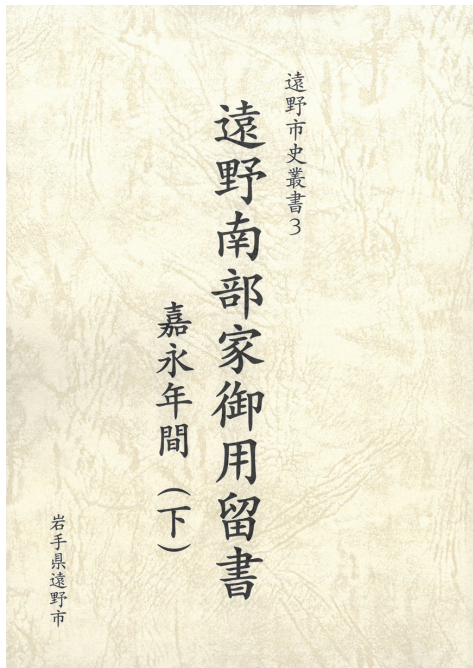 遠野市史叢書3
遠野南部家御用留書
嘉永年間（下）
岩手県遠野市